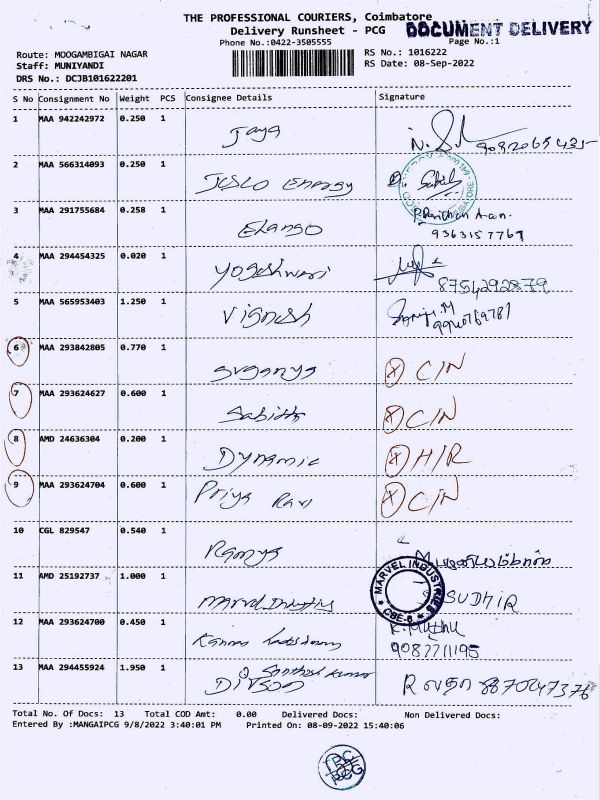 THE PROFESSIONAL COURIERS, Coimbatore
DOCUMENT DELIVERY
Delivery Runsheet - PCG
Phone No.:0422-3505555
Page No.:1
Route: MOOGAMBIGAI NAGAR
RS No.: 1016222
Staff: MUNIYANDI
RS Date: 08-Sep-2022
DRS No.: DCJB101622201
S No Consignment No Weight PCS Consignee Details Signature
1 MAA 942242972 0.250 1 Jaya
2 MAA 566314093 0.250 1 Energy
3 MAA 291755684 0.258 1 Elango
9363157767
4 MAA 294454325 0.020 1 Yogeshwari
8754292879
5 MAA 565953403 1.250 1 Vignesh
6 MAA 293842805 0.770 1 Suganya X C/N
7 MAA 293624627 0.600 1 X C/N
8 AMD 24636304 0.200 1 Dynamic X H/R
9 MAA 293624704 0.600 1 Priya Ravi X C/N
10 CGL 829547 0.540 1 Ramya
11 AMD 25192737 1.000 1 Marvel Industries SUDHIR
MARVEL INDUSTRIES
CBE-6
12 MAA 293624700 0.450 1 K. Muthu
13 MAA 294455924 1.950 1 Santhosh Kumar
Total No. Of Docs: 13 Total COD Amt: 0.00 Delivered Docs: Non Delivered Docs:
Entered By :MANGAIPCG 9/8/2022 3:40:01 PM Printed On: 08-09-2022 15:40:06